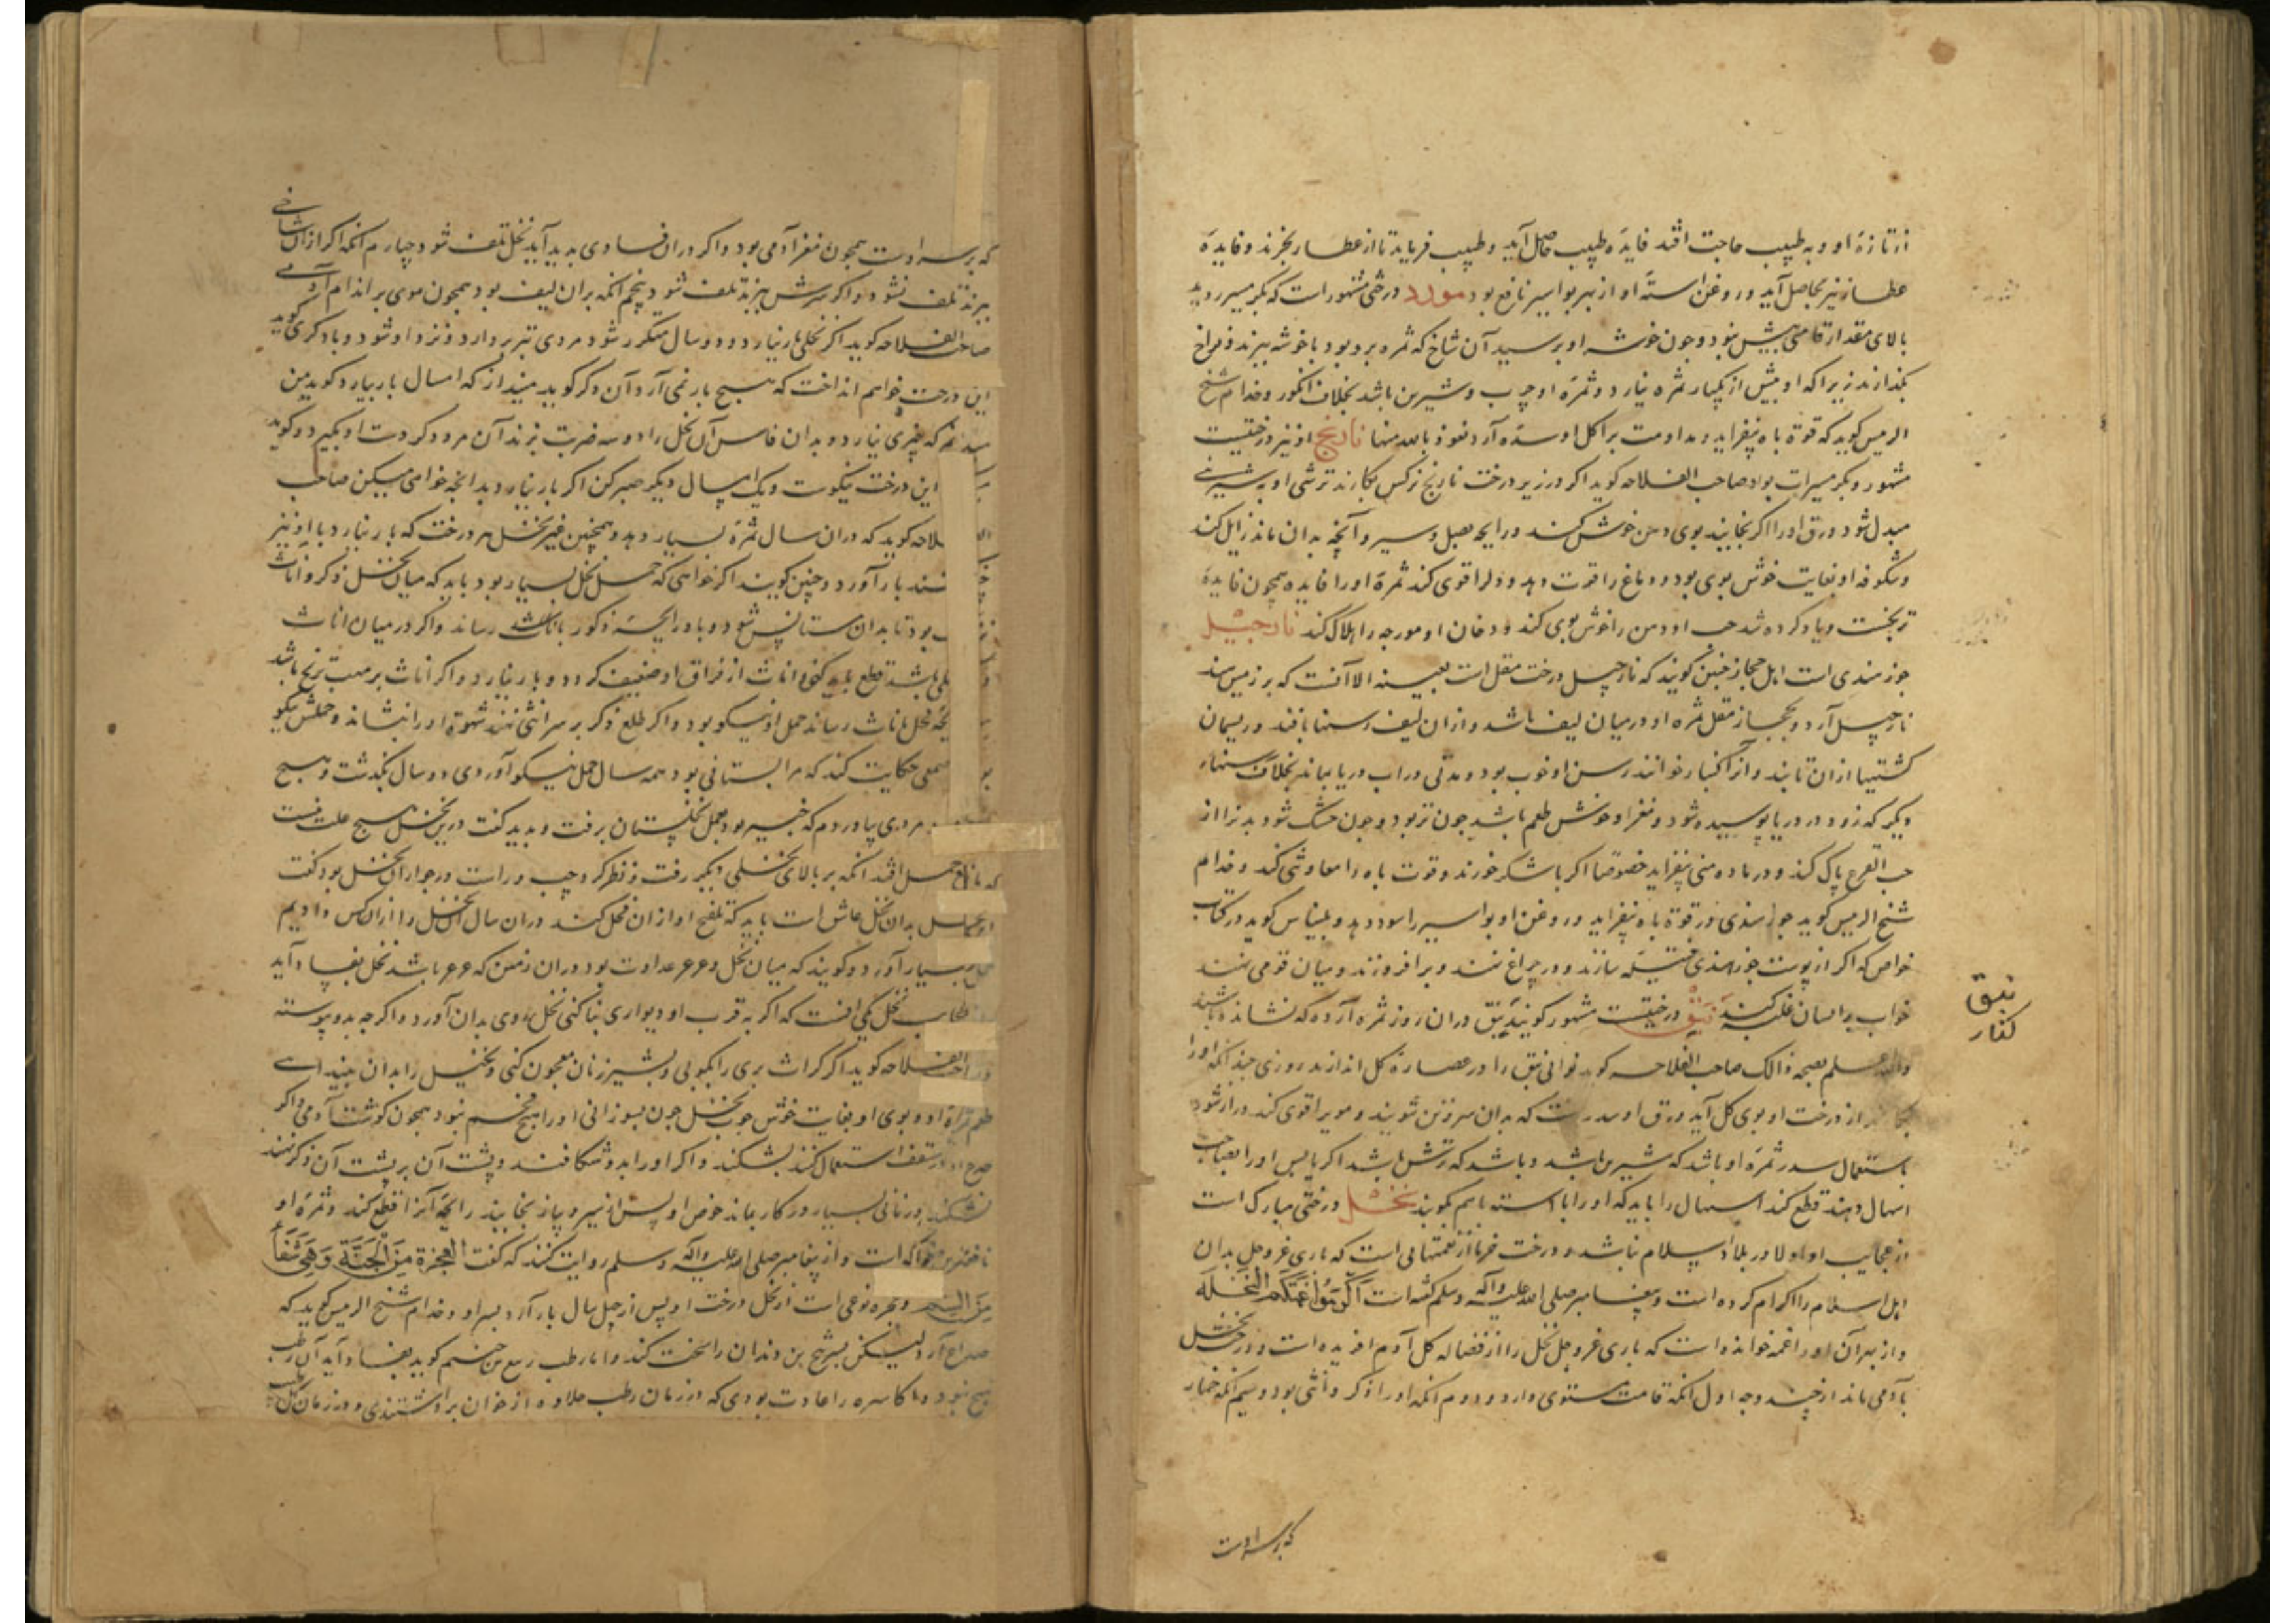 از تازهٔ او و به طبیب حاجت افتد فایدهٔ طبیب حاصل آید و طبیب فرماید تا از عطار بخرند و فایدهٔ
عطار نیز بحاصل آید و روغن استهٔ او از بهر بواسیر نافع بود مورد درختی مشهور است که بگرمسیر روید
بالای مقدار قامتی بیش نبود و چون خوشه او برسید آن شاخ که ثمره برد بود با خوشه ببرند و فراخ
بگذارند زیرا که او بیش از یکبار ثمره نیارد و ثمرهٔ او چرب و شیرین باشد بخلاف انگور و خدام شیخ
الرئیس گوید که قوة باه بیفزاید و مداومت بر اکل او سده آرد نعوذ بالله منها نارنج او نیز درختیست
مشهور و بگرمسیرات بود صاحب الفلاحه گوید اگر در زیر درخت نارنج نرگس بکارند ترشی او بشیرینی
مبدل شود ورق او را اگر بخایند بوی دهن خوش کند و رایحه بصل و سیر و آنچه بدان ماند زایل کند
و شکوفه او بغایت خوش بوی بود و دماغ را قوت دهد و دل را قوی کند ثمرهٔ او را فایده همچون فایدهٔ
ترنجست و یاد کرده شد حب او دهن را خوش بوی کند و دخان او مورچه را هلاک کند نارجیل
جوز هندی است اهل حجاز چنین گویند که نارجیل درخت مقل است بعینه الا آنست که بر زمین هند
نارجیل آرد و بحجاز مقل ثمره او در میان لیف باشد و از ان لیف رسنها بافند و ریسمان
کشتیها از ان تابند و آنرا کنبار خوانند رسن او خوب بود و مدتی در اب دریا بماند بخلاف رسنهاء
دیگر که زود در دریا پوسیده شود و مغز او خوش طعم باشد چون تر بود و چون خشک شود بدنرا از
حب القرع پاک کند و در ماده منی بیفزاید خصوصا اگر با شکر خورند و قوت باه را معاونتی کند و خدام
شیخ الرئیس گوید جوز هندی در قوة باه بیفزاید و روغن او بواسیر را سود دهد و بلیناس گوید در کتاب
خواص که اگر از پوست جوز هندی فتیله سازند و در چراغ نهند و بر افروزند و میان قومی نهند
خواب بر ایشان غلبه کند نبق درختیست مشهور گویند نبق در ان روز ثمره آرد که نشانده باشند
والله اعلم بصحة ذالک صاحب الفلاحه گوید نوای نبق را در عصاره گل اندازند روزی چند آنکه او را
از درخت او بوی گل آید ورق او سدر است که بدان سر و تن شویند و مو را قوی کند و دراز شود
باستعمال سدر ثمره او باشد که شیرین باشد و باشد که ترش باشد اگر یابس او را بصاحب
اسهال دهند قطع کند اسهال را باید که او را با استه باهم کوبند نخل درختی مبارک است
از عجایب او او لا در بلاد اسلام نباشد و درخت خرما از نعمتهایی است که باری عز و جل بدان
اهل اسلام را اکرام کرده است و پیغامبر صلی الله علیه وآله وسلم گفته است اَکْرِمُوا عَمَّتَکُمُ النَّخْلَةَ
و از بهر آن او را عمه خوانده است که باری عز و جل نخل را از فضاله گل آدم افریده است و درخت نخل
بآدمی ماند از چند وجه اول انکه قامت مستوی دارد و دوم انکه او را ذکر و انثی بود و سیم انکه خمار
که بر سر اوست
نبق
کنار
که بر سر اوست همچون مغز آدمی بود و اگر در ان فسادی بدید آید نخل تلف شود چهارم آنکه اگر از ان شاخی
ببرند تلف نشود و اگر سرش ببرند تلف شود پنجم انکه بر ان لیف بود همچون موی بر اندام آدمی
صاحب الفلاحه گوید اگر نخلی بار نیارد و دو سال مکرر شود مردی تبر بردارد و نزد او شود و با دگری گوید
این درخت خواهم انداخت که هیچ بار نمی آرد آن دگر گوید مینداز که امسال بار بیارد گوید من
که چیزی نیارد و بدان فاس آن نخل را دو سه ضربت بزند آن مرد دگر دست او بگیرد و گوید
این درخت نیکوست و یک امسال دیگر صبر کن اگر بار نیارد بدانچه خواهی میکن صاحب
گوید که در ان سال ثمره بسیار دهد و همچنین غیر نخل هر درخت که بار نیارد با او نیز
بار آورد و چنین گویند اگر خواهی که حمل نخل بسیار بود باید که میان نخل ذکر و اناث
بود تا بدان مستانس شود و باد رایحه ذکور باناث رساند و اگر در میان اناث
باشد قطع باید کنی اناث از فراق او ضعیف گردد و بار نیارد و اگر اناث بر مهب ریح باشد
فحل باناث رساند حمل او نیکو بود و اگر طلع ذکر بر سر انثی نهند شهوة او را بنشاند و حملش نیکو
حکایت کند که مرا بستانی بود همه سال حمل نیکو آوردی دو سال بگذشت و هیچ
مردی بیاوردم که خبیر بود بعمل نخلستان برفت و بدید گفت درین نخل هیچ علت نیست
افتد انکه بر بالای نخلی دیگر رفت و نظر کرد چپ و راست در جوار آن نخل بود گفت
بدان نخل عاشق است باید که تلقیح او از ان فحل کنند در ان سال آن نخل را از ان کس دادیم
بسیار آورد و گویند که میان نخل و عرعر عداوت بود در ان زمین که عرعر باشد نخل بفساد آید
نخل یکی انست که اگر به قرب او دیواری بنا کنی نخل روی بدان آورد و اگر چه بدو پیوسته
گوید اگر کراث بری را بکوبی و بشیر زنان معجون کنی و نخیل را بدان بنیدای
او و بوی او بغایت خوش چوب نخل چون بسوزانی او را هیچ فحم نبود همچون گوشت آدمی و اگر
استعمال کنند بشکند و اگر او را بدو شکافند و پشت آن بر پشت آن دگر نهند
نشکند و زمانی بسیار در کار بماند خوص او پس از سیر و پیاز بخایند رایحه آنرا قطع کند و ثمره او
است و از پیغامبر صلی الله علیه وآله وسلم روایت کنند که گفت العجوة مِنَ الْجَنَّةِ وَهِيَ شِفَاءٌ
مِنَ السم و عجوه نوعی است از نخل درخت او پس از چهل سال بار آرد بسر او و خدام شیخ الرئیس گوید که
صداع آرد لیکن بن دندان را سخت کند و اما رطب ربیع بن خثیم گوید بفساد آید آن رطب
نبود و اکاسره را عادت بودی که در زمان رطب حلاوه از خوان برداشتندی و در زمان گل